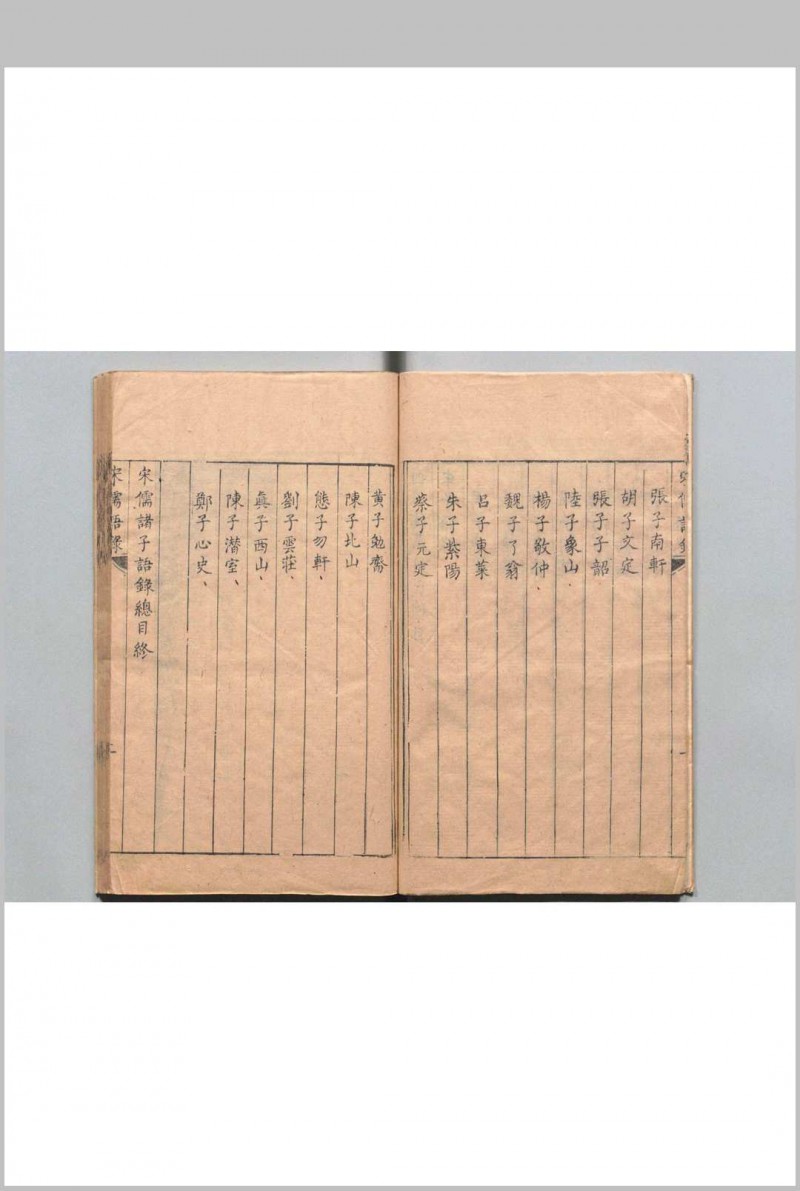 張子南軒
胡子文定
張子子韶
陸子象山、
楊子敬仲、
魏子了翁
呂子東萊
朱子紫陽
蔡子元定
黃子勉齋
陳子北山
熊子勿軒、
劉子雲莊、
真子西山、
陳子潛室、
鄭子心史、
宋儒諸子語錄總目終
宋儒語錄